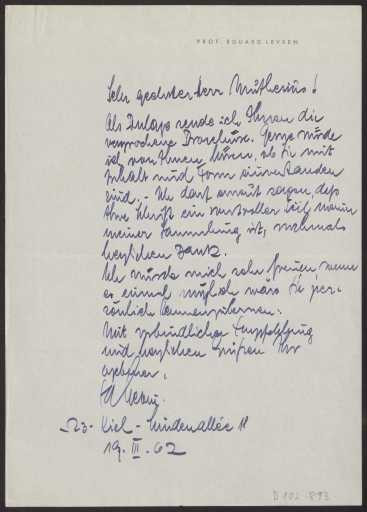 PROF. EDUARD LEVSEN
Sehr geehrter Herr Muthesius!
Als Anlage sende ich Ihnen die
versprochene Broschüre. Gerne würde
ich von Ihnen hören, ob Sie mit
Inhalt und Form einverstanden
sind. - Ich darf erneut sagen, daß
Ihre Schrift ein wertvoller Teil
meiner Sammlung ist, nochmals
herzlichen Dank.
Ich würde mich sehr freuen, wenn
es einmal möglich wäre Sie per-
sönlich kennenzulernen.
Mit verbindlicher Empfehlung
und herzlichen Grüßen Ihr
ergebener,
23 - Kiel - Lindenallée 11
19. III. 62
D 102-893